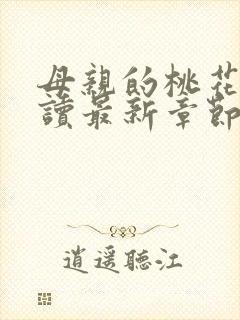 母親的桃花
讀最新章節
逍遥聽江